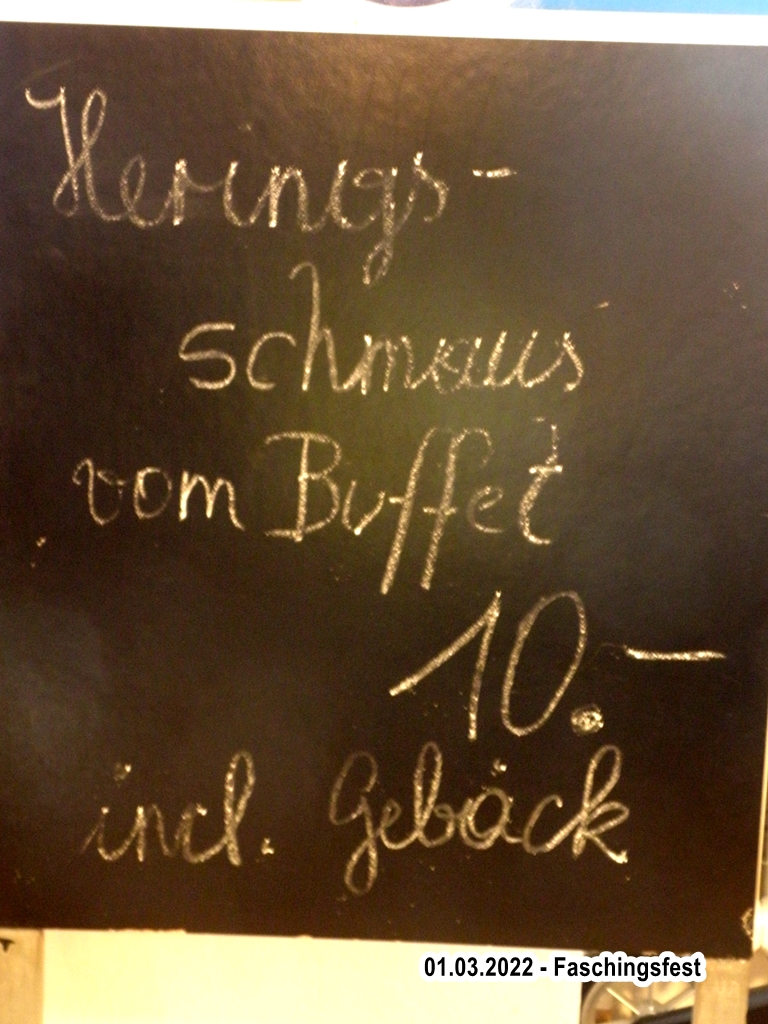 Herings-
schmaus
vom Buffet
10.-
incl. Gebäck
01.03.2022 - Faschingsfest